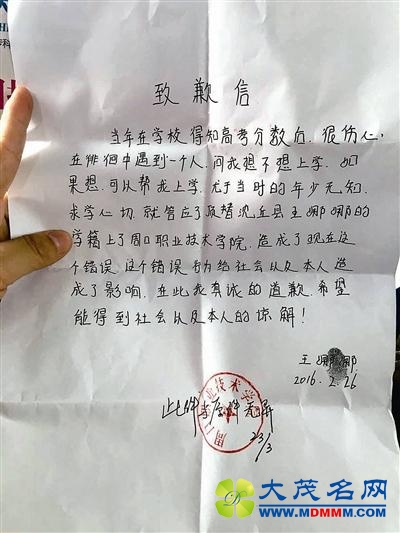 致歉信
当年在学校得知高考分数后，很伤心，
在徘徊中遇到一个人，问我想不想上学，如
果想，可以帮我上学，尤于当时的年少无知，
求学心切，就答应了顶替沈丘县王娜娜的
学籍上了周口职业技术学院，造成了现在这
个错误，这个错误行为给社会以及本人造
成了影响，在此我真诚的道歉，希望
能得到社会以及本人的谅解！
王娜娜
2016.2.26
周口职业技术学
此件与原件无异
23/3
大茂名网
WWW.MDMMM.COM